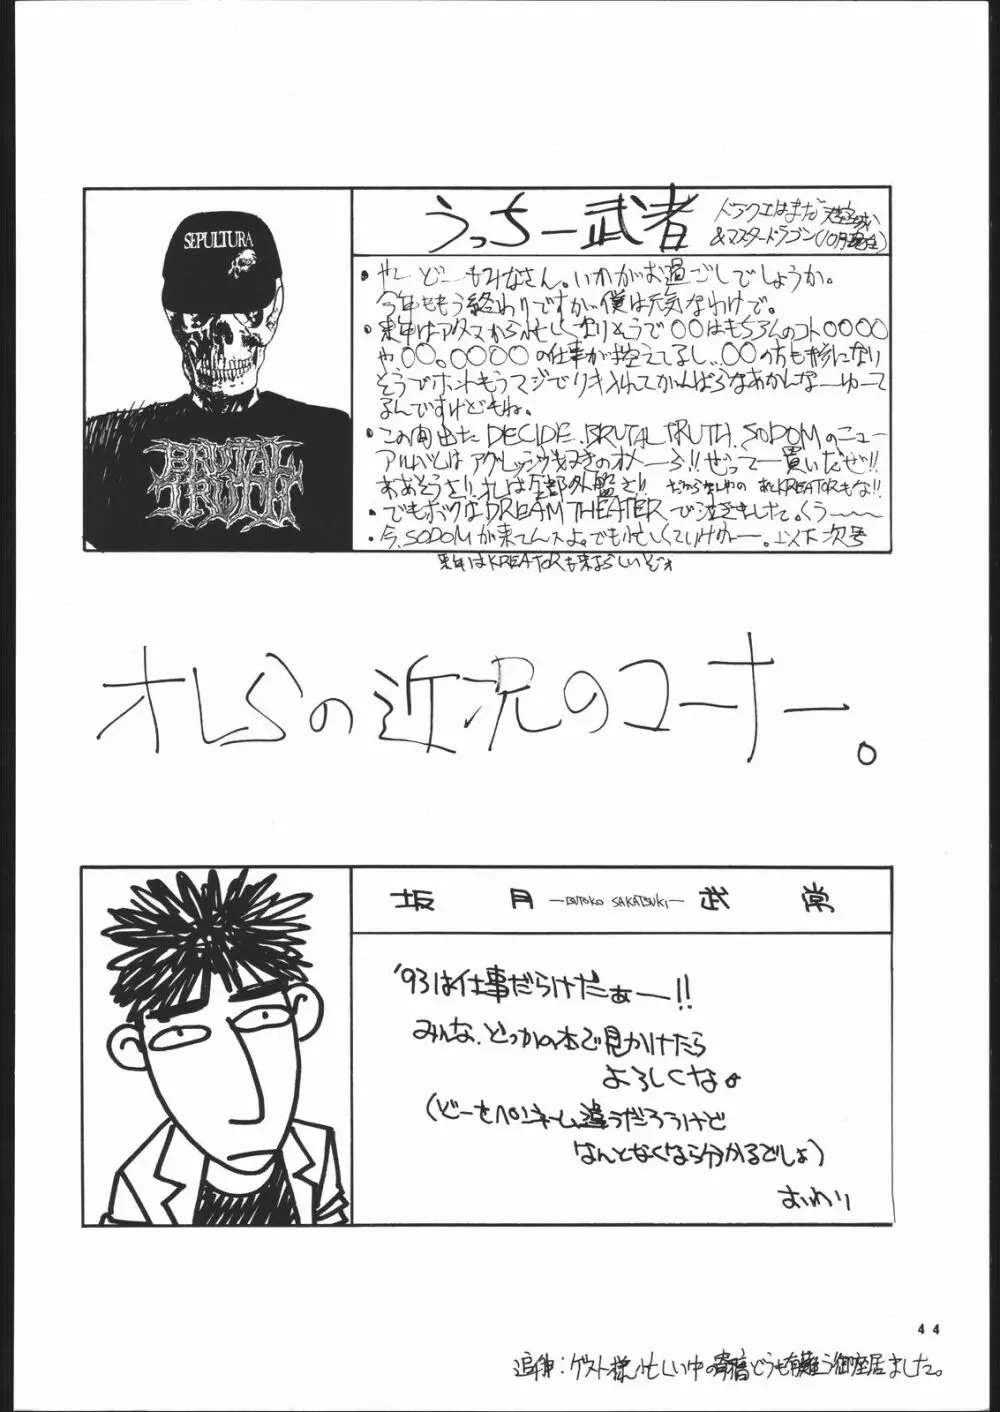 SEPULTURA
BRUTAL
TRUTH
うっちー武者
ドラクエはまだ天空城
&マスタードラゴン(10月現在)
・やー どーもみなさん。いかがお過ごしでしょうか。
今年ももう終わりですが、僕は元気なわけで。
・来年はアタマから忙しくなりそうで〇〇はもちろんのコト〇〇〇〇
や〇〇。〇〇〇〇の仕事が控えてるし、〇〇の方も参になり
そうでホントもうマジでリキ入れてがんばらなあかんなーゆーて
るんですけどもね。
・この間出たDECIDE、BRUTAL TRUTH、SODOMのニュー
アルバムはアグレッシヴ好きのオメーら!!ぜってー買いだぜ!!
ああそうさ!!オレは全部外盤さ!! あとKREATORもな!!
・でもボクはDREAM THEATERで泣きました。くぅ〜〜
・今、SODOMが来てんスよ。でも忙しくていけねー。以下次号
来年はKREATORも来るらしいぞォ
オレらの近況のコーナー。
坂月 —BUTOKO SAKATSUKI— 武常
'93は仕事だらけだぁー!!
みんな、どっかの本で見かけたら
よろしくな。
(どーせペンネーム違うだろうけど
なんとなくなら分かるでしょ)
おわり
44
追伸:ゲスト様、忙しい中の寄稿どうも有難う御座居ました。